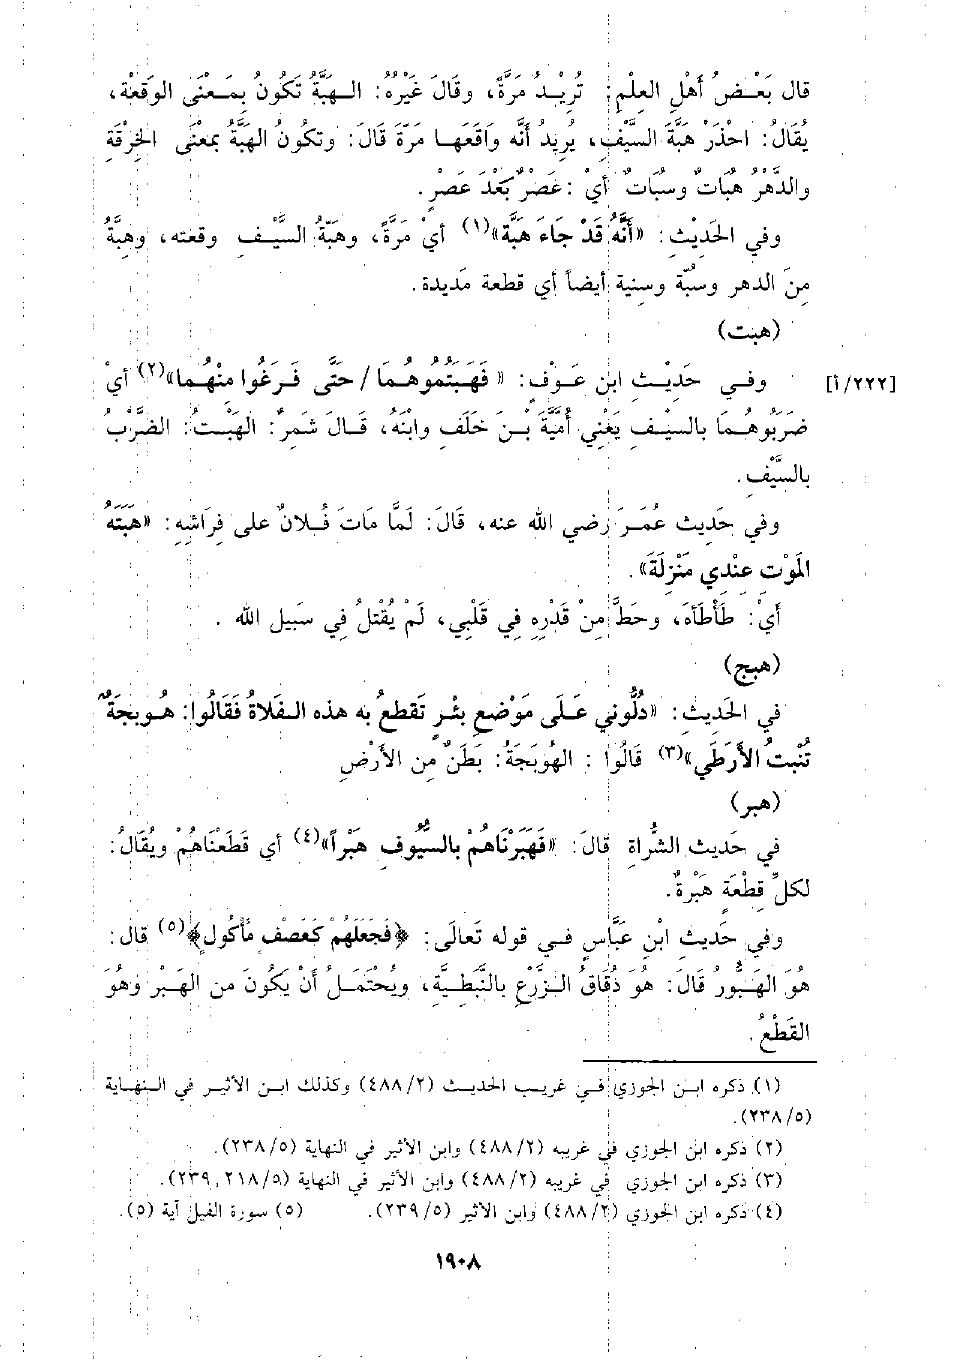 قال بَعْضُ أَهْلِ العِلْمِ: تُرِيْدُ مَرَّةً، وقَالَ غَيْرُهُ: الهَبَّةُ تَكُونُ بِمَعْنَى الوَقَعْة،
يُقَالُ: احْذَرْ هَبَّةَ السَّيْفِ، يُرِيدُ أنَّه وَاقَعَهَا مَرّةَ قَالَ: وتكُونُ الهَبَّةُ بمعْنَى الخِرْقَةِ
والدَّهْرُ هَبَاتٌ وسُبَاتٌ أيْ: عَصْرٌ بَعْدَ عَصْرٍ.
وفي الحَدِيْثِ: «أَنَّهُ قَدْ جَاءَ هَبَّة»(١) أيْ مَرَّةً، وهَبَّةُ السَّيْف وقعته، وهبَّةٌ
مِنَ الدهر وسُبَّة وسنية أيضاً أي قطعة مَديدة.
(هبت)
[٢٢٢/أ] وفي حَدِيْث ابن عَوْفٍ: « فَهَبَتُموهُمَا / حَتَّى فَرَغُوا منْهُما»(٢) أيْ
ضَرَبُوهُمَا بالسيْفِ يَعْنِي أُمَيَّةَ بْنَ خَلَفٍ وابْنَهُ، قَالَ شَمر: الهَبْتُ: الضَّرْبُ
بالسَّيْفِ.
وفي حَدِيث عُمَرَ رضي الله عنه، قَالَ: لَمَّا مَاتَ فُلانٌ على فِرَاشهِ: «هَبَتَهُ
المَوْت عِنْدي مَنْزِلَةً».
أيْ: طَأْطَأَه، وحَطَّ مِنْ قَدْرِهِ في قَلْبِي، لَمْ يُقْتلْ فِي سَبِيل الله .
(هبج)
في الحَديْث: «دلُّوني عَلَى مَوْضعِ بئْرٍ تَقطعُ به هذه الفَلاةُ فَقَالُوا: هُوبجَةٌ
تُنْبتُ الأَرَطَي»(٣) قَالُوا : الهَوْبَجَةُ: بَطَنٌ من الأَرْضِ
(هبر)
في حَديث الشُّرَاةِ قالَ: «فَهَبَرْنَاهُمْ بالسُّيُوف هَبْراً»(٤) أي قَطَعْنَاهُمْ ويُقَالُ:
لكلِّ قطْعَةٍ هَبْرةٌ.
وفي حَديث ابْنِ عَبَّاسٍ في قوله تَعالَى: ﴿فَجَعَلَهُمْ كَعَصْف مَأْكُول﴾(٥) قال:
هُوَ الهَبُّورُ قَالَ: هُوَ دُقَاقُ الزَّرْعِ بالنَّبَطِيَّة، ويُحْتَمَلُ أَنْ يَكُونَ من الهَبْر وهُوَ
القَطْعُ.
(١) ذكره ابن الجوزي في غريب الحديث (٤٨٨/٢) وكذلك ابن الأثير في النهاية
(٢٣٨/٥).
(٢) ذكره ابن الجوزي في غريبه (٤٨٨/٢) وابن الأثير في النهاية (٢٣٨/٥).
(٣) ذكره ابن الجوزي في غريبه (٤٨٨/٢) وابن الأثير في النهاية (٢٣٩,٢١٨/٥).
(٤) ذكره ابن الجوزي (٤٨٨/٢) وابن الأثير (٢٣٩/٥). (٥) سورة الفيل آية (٥).
١٩٠٨